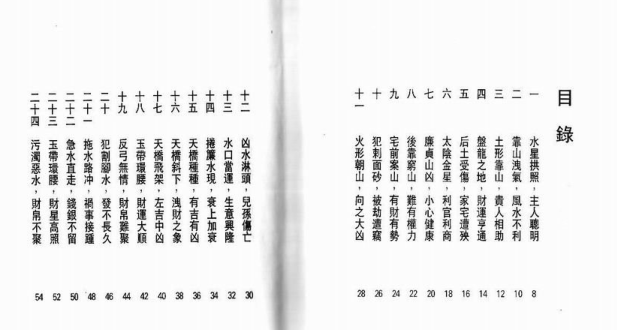 目錄
一 水星拱照，主人聰明 8
二 靠山洩氣，風水不利 10
三 土形靠山，貴人相助 12
四 盤龍之地，財運亨通 14
五 后土受傷，家宅遭殃 16
六 太陰金星，利官利商 18
七 廉貞山凶，小心健康 20
八 後靠窮山，難有權力 22
九 宅前案山，有財有勢 24
十 犯刺面砂，被劫遭竊 26
十一 火形朝山，向之大凶 28
十二 凶水淋頭，兒孫傷亡 30
十三 水口當運，生意興隆 32
十四 捲簾水現，衰上加衰 34
十五 天橋種種，有吉有凶 36
十六 天橋斜下，洩財之象 38
十七 天橋飛架，左吉中凶 40
十八 玉帶環腰，財運大順 42
十九 反弓無情，財帛難聚 44
二十 犯割腳水，發不長久 46
二十一 拖水路冲，禍事接踵 48
二十二 急水直走，錢銀不留 50
二十三 玉帶環腰，財星高照 52
二十四 污濁惡水，財帛不聚 54